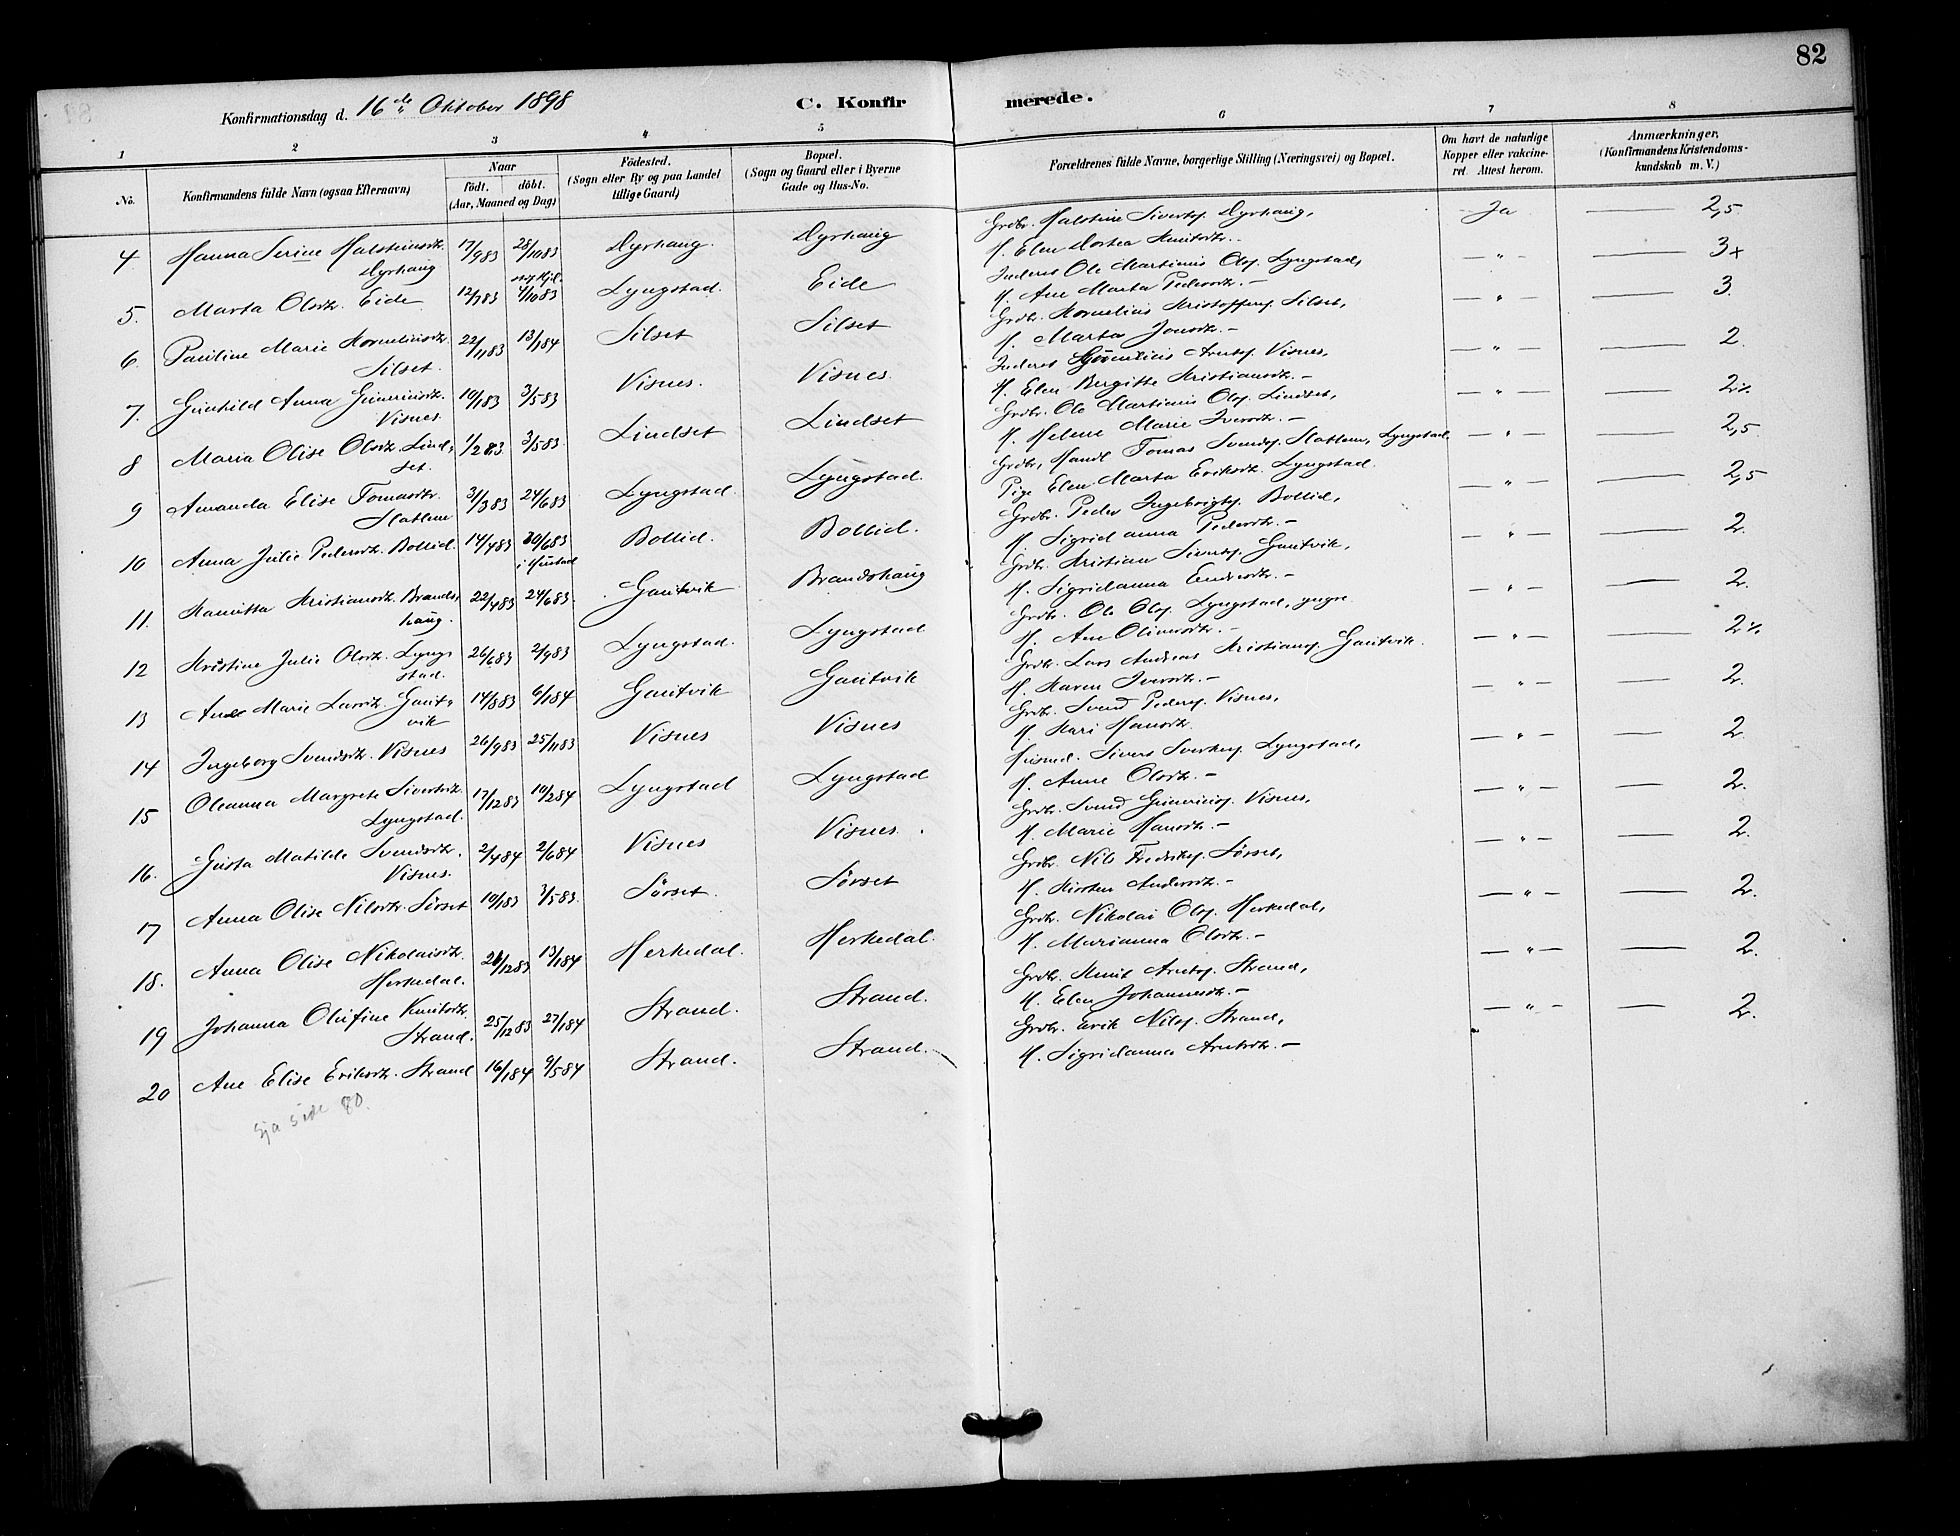 82
Konfirmationsdag d. 16de Oktober 1898
C. Konfirmerede.
1 2 3 4 5 6 7 8
No.
Konfirmandens fulde Navn (ogsaa Efternavn)
Naar
født. døbt.
(Aar, Maaned og Dag)
Fødested.
(Sogn eller By og paa Landet
tillige Gaard)
Bopæl.
(Sogn og Gaard eller i Byerne
Gade og Hus-No.
Forældrenes fulde Navne, borgerlige Stilling (Næringsvei) og Bopæl.
Om havt de naturlige
Kopper eller vakcine-
ret. Attest herom.
Anmærkninger.
(Konfirmandens Kristendoms-
kundskab m. V.)
4 Hanna Serine Halsteinsdtr. 17/9 83 28/10 83 Dyrhaug. Dyrhaug Grdbr. Halstein Sivertsf. Dyrhaug, Ja — 2,5
Dyrhaug H. Elen Dortea Knutsdtr.
5. Marta Olsdtr. Eide 12/7 83 4/10 83 Lyngstad. Eide Inderst Ole Martinus Olsf. Lyngstad, — " — 3+
H. Ane Marta Pedersdtr. —
6 Pauline Marie Korneliusdtr. 22/11 83 13/1 84 Silset Silset Grdbr. Kornelius Kristoffersf. Silset, — " — 3.
Silset. H. Marta Jonsdtr. —
7. Gunhild Anna Gunnriusdtr. 10/1 83 3/5 83 Visnes. Visnes. Inderst Arntsf. Visnes, — " — 2
Visnes. H. Elen Bergitte Kristiansdtr. —
8 Maria Olise Olsdtr. Lind- 1/2 83 3/5 83. Lindset Lindset Grdbr. Ole Martinus Olsf. Lindset, — " — 2%
set. H. Helene Marie Iversdtr. —
9 Amanda Elise Tomasdtr. 31/3 83 24/6 83 Lyngstad. Lyngstad. Grdbr, Handl Tomas Svendsf. Slatlem, Lyngstad, — " — 2,5
Slatlem Pige Elen Marta Eriksdtr. Lyngstad.
10 Anna Julie Pedersdtr. Bollid. 14/4 83 30/6 83 Bollid. Bollid. Grdbr. Peder Ingebrigtsf. Bollid, — " — 2,5
i Hustad H. Sigridanna Pedersdtr. —
11. Hanitta Kristiansdtr. Brands- 22/4 83 24/6 83. Gautvik Brandshaug Grdbr. Kristian Sivertsf. Gautvik, — " — 2
haug. H. Sigridanna Endresdtr. —
12 Kristine Julie Olsdtr. Lyng- 26/6 83 2/9 83 Lyngstad. Lyngstad Grdbr. Ole Olsf. Lyngstad, yngre — " — 2.
stad. H. Ane Olinusdtr. —
13 Ane Marie Larsdtr. Gaut- 14/8 83 6/1 84 Gautvik Gautvik Grdbr. Lars Andreas Kristiansf. Gautvik. — " — 2%
vik H. Karen Iversdtr. —
14 Ingeborg Svendsdtr. Visnes 26/9 83 25/11 83 Visnes Visnes Grdbr. Svend Pedersf. Visnes, — " — 2.
H. Kari Hansdtr.
15 Oleanna Margrete Sivertsdtr. 17/12 83 10/2 84 Lyngstad Lyngstad Husmd. Sivert Sverkesf. Lyngstad, — " — 2
Lyngstad. H. Anne Olsdtr. —
16. Gusta Matilde Svendsdtr. 2/4 84 2/6 84 Visnes Visnes. Grdbr. Svend Gunnriusf. Visnes, — " — 2.
Visnes. H. Marie Hansdtr. —
17 Anna Olise Nilsdtr. Sørset 10/1 83 3/5 83. Sørset. Sørset Grdbr. Nils Fredriksf. Sørset, — " — 2.
H. Kirsten Andersdtr. —
18. Anna Olise Nikolaisdtr. 21/12 83 13/1 84 Herkedal. Herkedal. Grdbr. Nikolai Olsf. Herkedal, — " — 2.
Herkedal. H. Marianna Olsdtr. —
19 Johanna Olufine Knutsdtr. 25/12 83 27/1 84 Strand. Strand. Grdbr. Knut Arntsf. Strand, — " — 2.
Strand. H. Elen Johannesdtr. —
20 Ane Elise Eriksdtr. Strand 16/1 84 9/5 84 Strand. Strand. Grdbr. Erik Nilsf. Strand, — " — 2.
H. Sigridanna Arntsdtr. —
Sjå side 80.